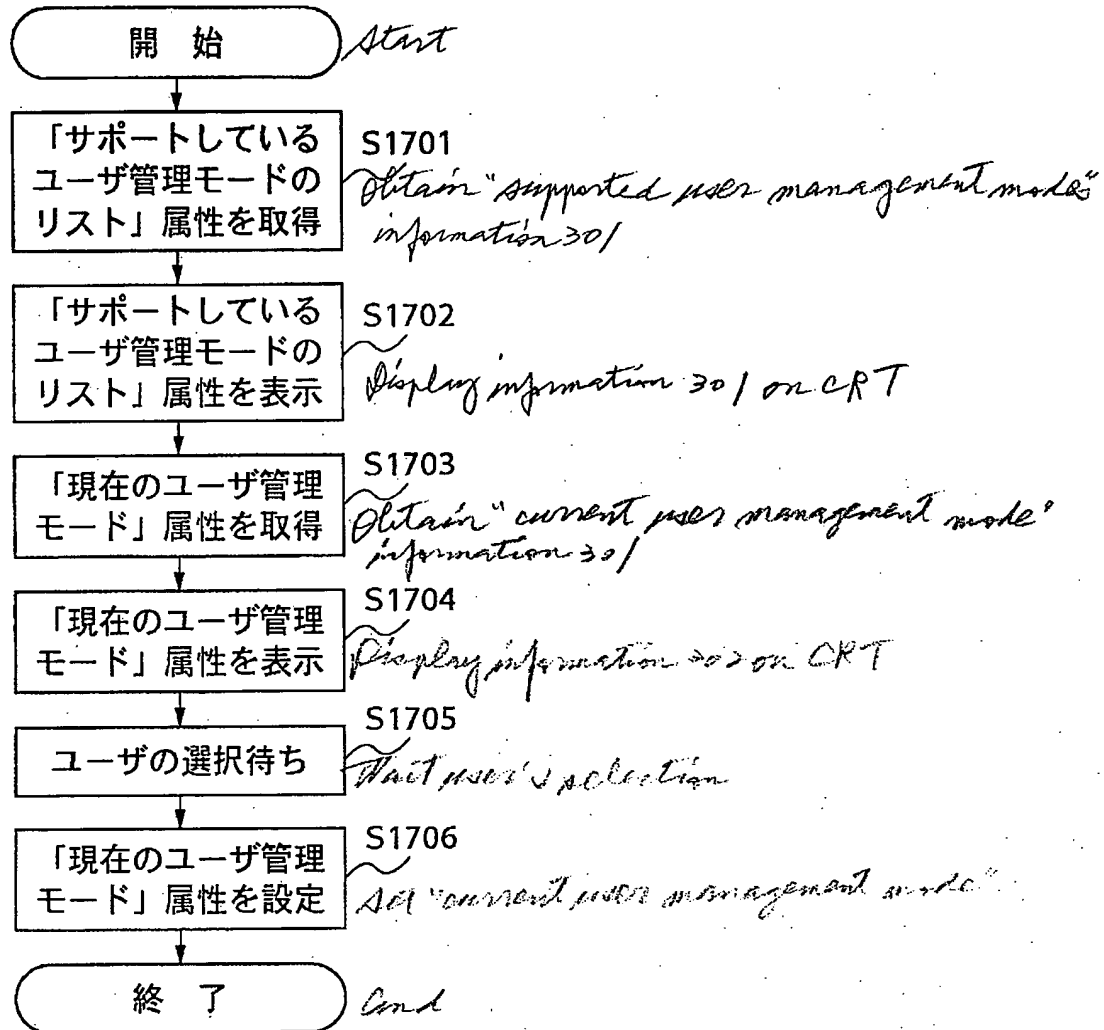 開 始
Start
「サポートしている
ユーザ管理モードの
リスト」属性を取得
S1701
Obtain "supported user management modes"
information 301
「サポートしている
ユーザ管理モードの
リスト」属性を表示
S1702
Display information 301 on CRT
「現在のユーザ管理
モード」属性を取得
S1703
Obtain "current user management mode"
information 301
「現在のユーザ管理
モード」属性を表示
S1704
Display information 302 on CRT
ユーザの選択待ち
S1705
Wait user's selection
「現在のユーザ管理
モード」属性を設定
S1706
Set "current user management mode"
終 了
End